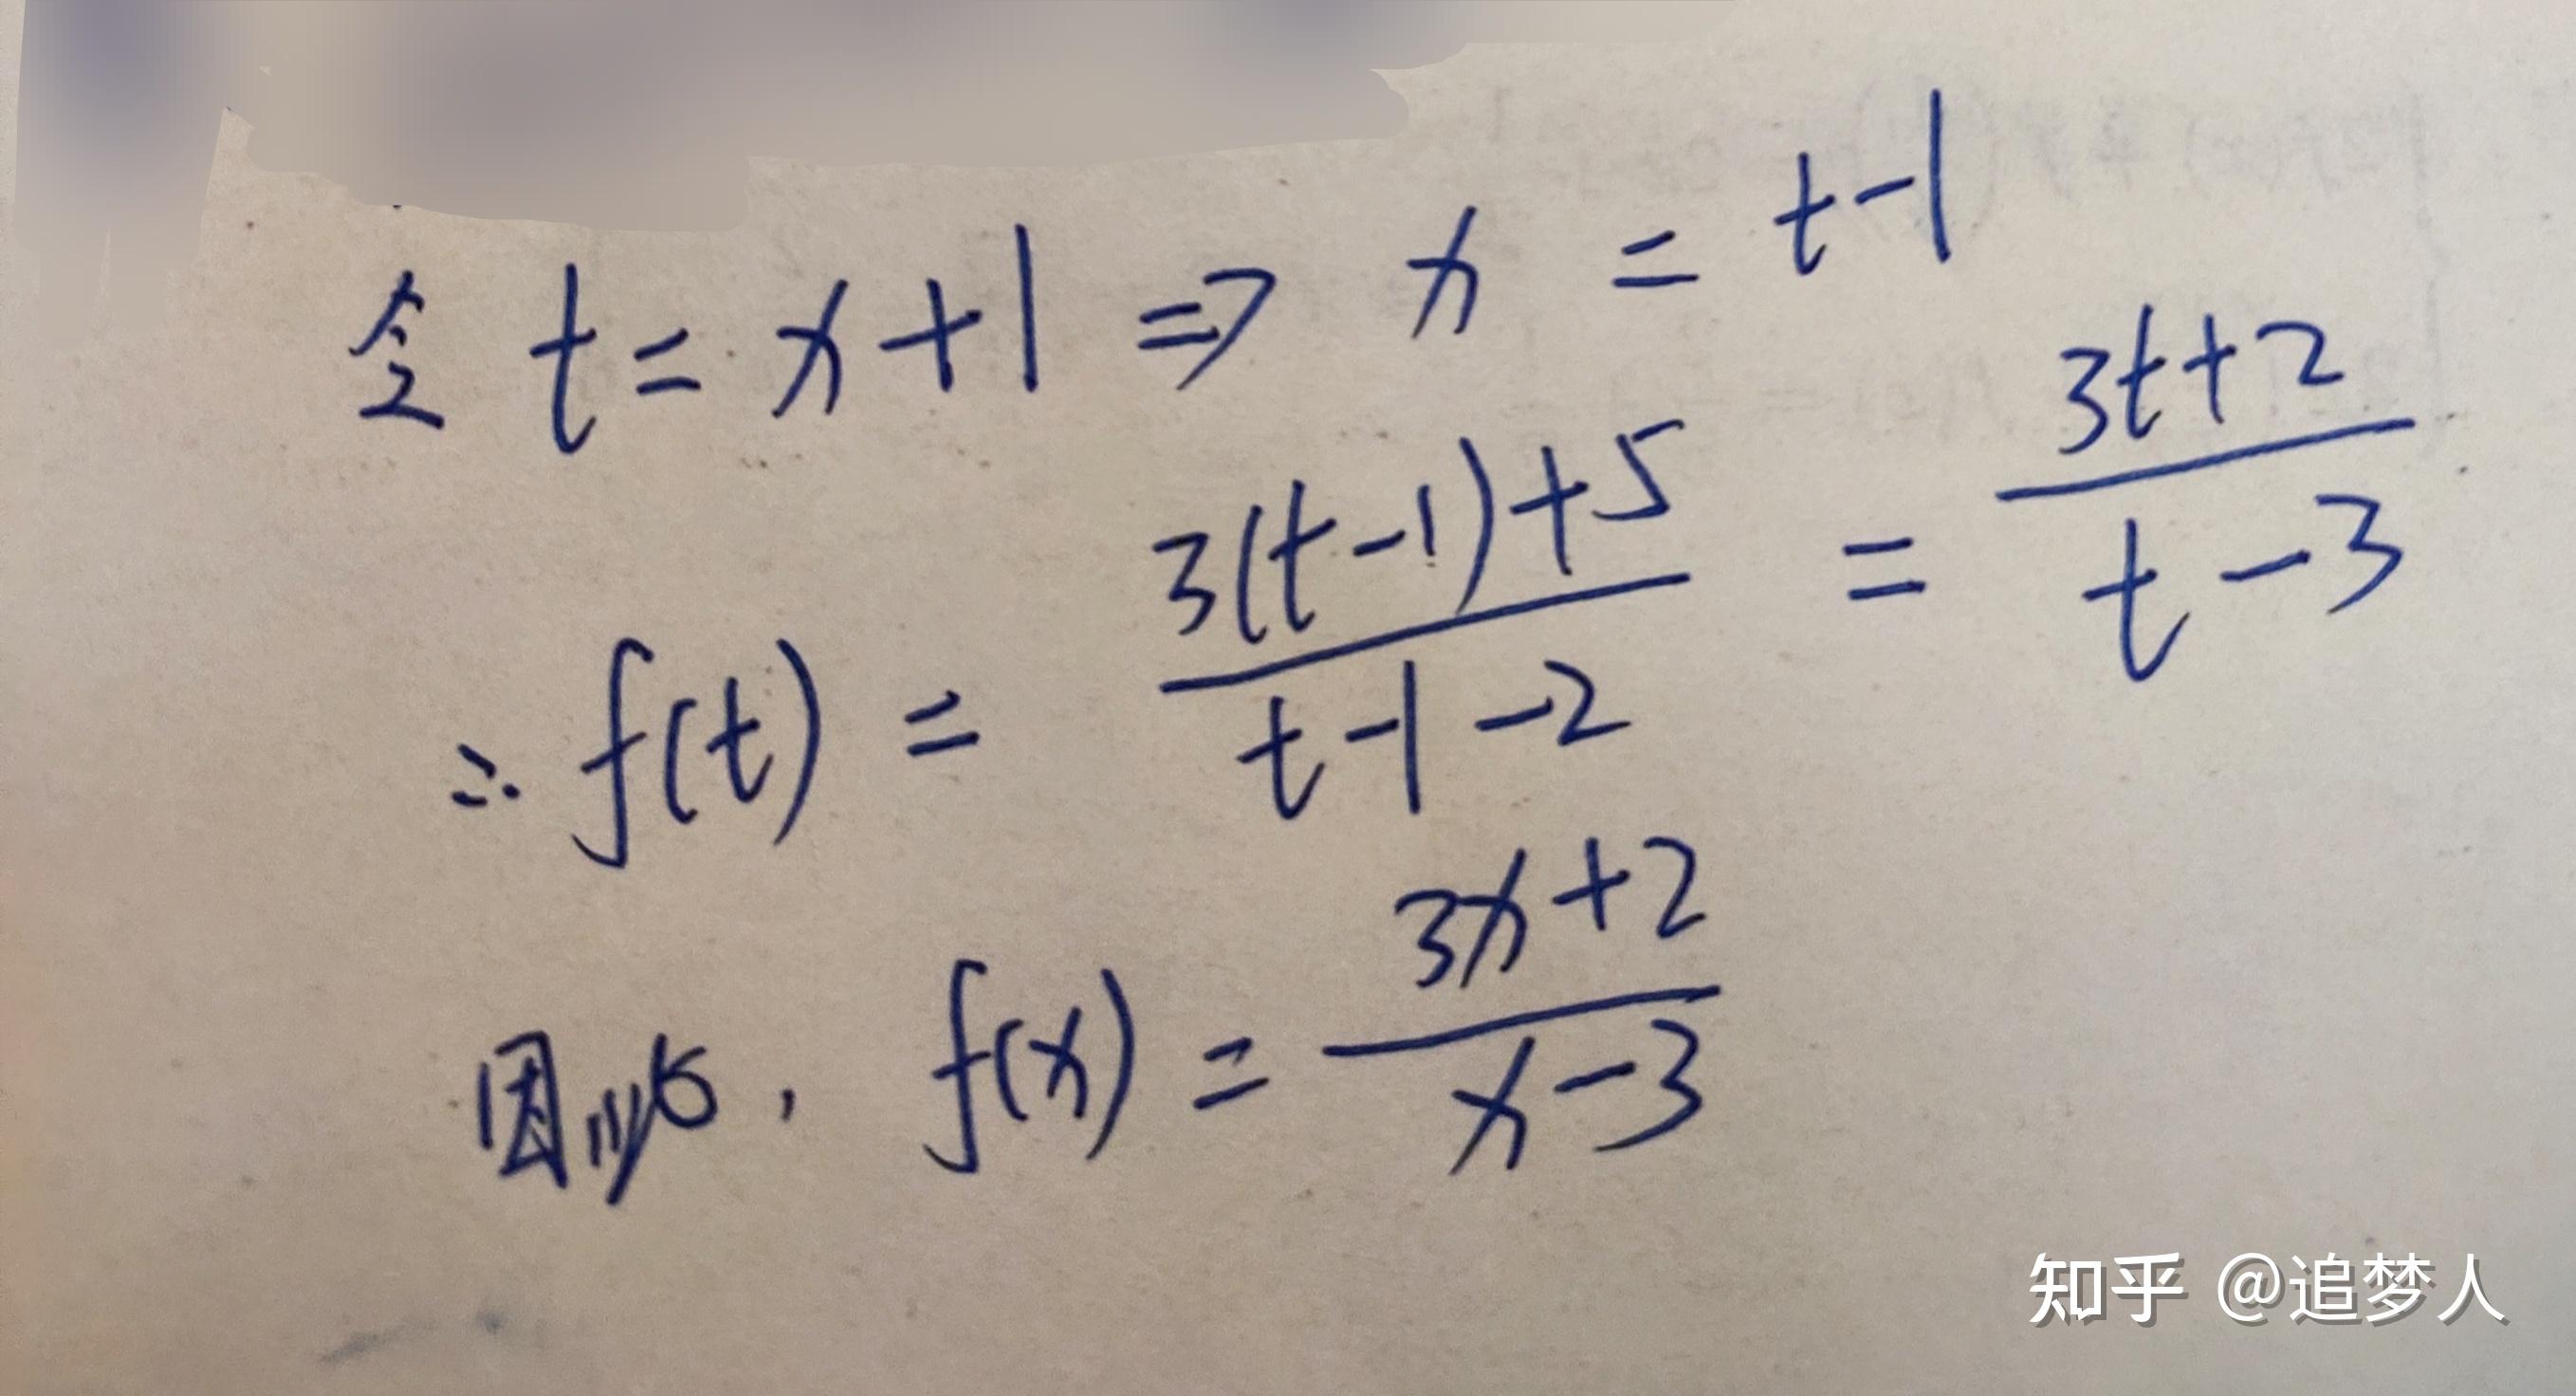 令 t = x + 1 ⇒ x = t - 1
∴ f(t) = \frac{3(t-1)+5}{t-1-2} = \frac{3t+2}{t-3}
因此, f(x) = \frac{3x+2}{x-3}
知乎 @追梦人